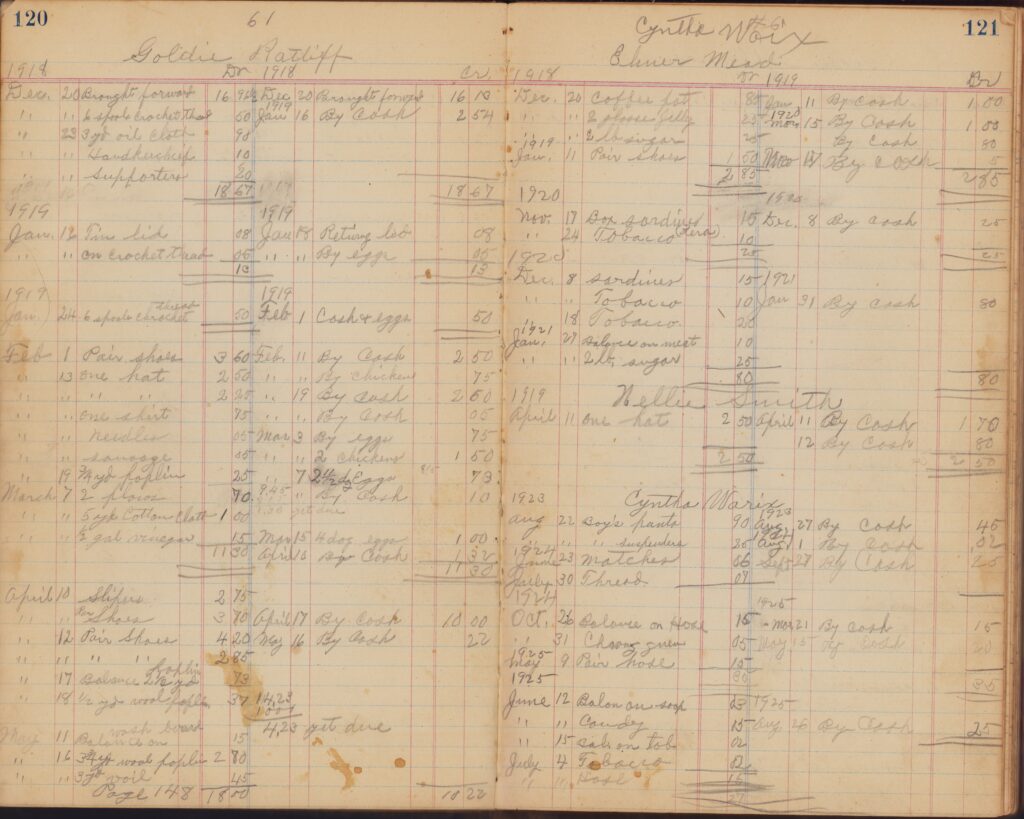 120
61
Goldie Ratliff
1918 Dr 1918 Cr
Dec. 20 Brought forward 16 Dec 20 Brought forward 16 13
" " 6 spools crochet thread 60 1919 Jan 16 By Cash 2 54
" 23 3 yd oil cloth 90
" " Handkerchief 10
" " Supporters 20
18 67 18 67
1919 1919
Jan. 12 Tin lid 08 Jan 18 Returned lid 08
" " on crochet thread 05 " " By eggs 05
13 13
1919 1919
Jan. 24 6 spools crochet thread 50 Feb 1 Cash & eggs 50
Feb 1 Pair shoes 3 60 Feb. 11 By Cash 2 50
" 13 one hat 2 50 " " By chicken 75
" " " " 2 25 " 19 By cash 2 60
" " one shirt 75 " " By Cash 05
" " needles 05 Mar 3 By eggs 75
" " sausage 05 " " 2 chickens 1 50
" 19 yd poplin 25 " 7 2 1/2 dz Eggs 73
March 7 2 plows 70 9.45 " By Cash 10
" " 5 yds Cotton Cloth 1 00 yet due
" " 1/2 gal vinegar 15 Mar 15 4 doz eggs 1 00
11 30 April 5 By Cash 1 32
11 30
April 10 Slipers 2 75
" " Pair Shoes 3 70 April 17 By Cash 10 00
" 12 Pair Shoes 4 20 May 16 By Cash 22
" " " " 2 85
" 17 Balance 2 1/2 yd poplin 73
" 18 1/2 yd wool poplin 37 14.23
4.23 yet due
May 11 Balance on wash board 15
" 16 3 3/4 yd wool poplin 2 80
" " 3 yd voil 45
Page 148 18 00 10 22
121
Cyntha Warix
Elmer Mead
1918 Dr 1919
Dec. 20 Coffee pot 85 Jan 11 By Cash 1 00
" " 2 glasses jelly 25 1920 Mar 15 By Cash 1 00
" " 2 lb sugar 25 By Cash 80
1919 Jan. 11 Pair shoes 1 50 Nov 17 By Cash 5
2 85 2 85
1920 1920
Nov. 17 Box sardines 15 Dec. 8 By cash 25
" 24 Tobacco 10
25 25
1920
Dec. 8 sardines 15 1921
" " Tobacco 10 Jan 31 By cash 80
" 18 Tobacco 20
1921 Jan. 27 Balance on meat 10
" " 2 lb. sugar 25
80 80
1919 Nellie Smith
April 11 one hat 2 50 April 11 By Cash 1.70
12 By Cash 80
2 50 2 50
1923 Cyntha Warix
1923
Aug 22 Boy's pants 90 Aug. 27 By Cash 45
" " " suspenders 25 1924 Aug 1 By Cash 02
1924 June 23 Matches 06 Sept 27 By Cash 25
July 30 Thread 07
1924 1925
Oct. 26 Balance on Hose 15 Mar 21 By cash 15
" 31 Chewing gum 05 May 15 By Cash 20
1925 May 9 Pair hose 15
35
1925
June 12 Balan on soap 03 1925
" " Candy 15 Aug 26 By Cash 25
" 15 Bal. on tob 02
July 4 Tobacco
" " Hose 15